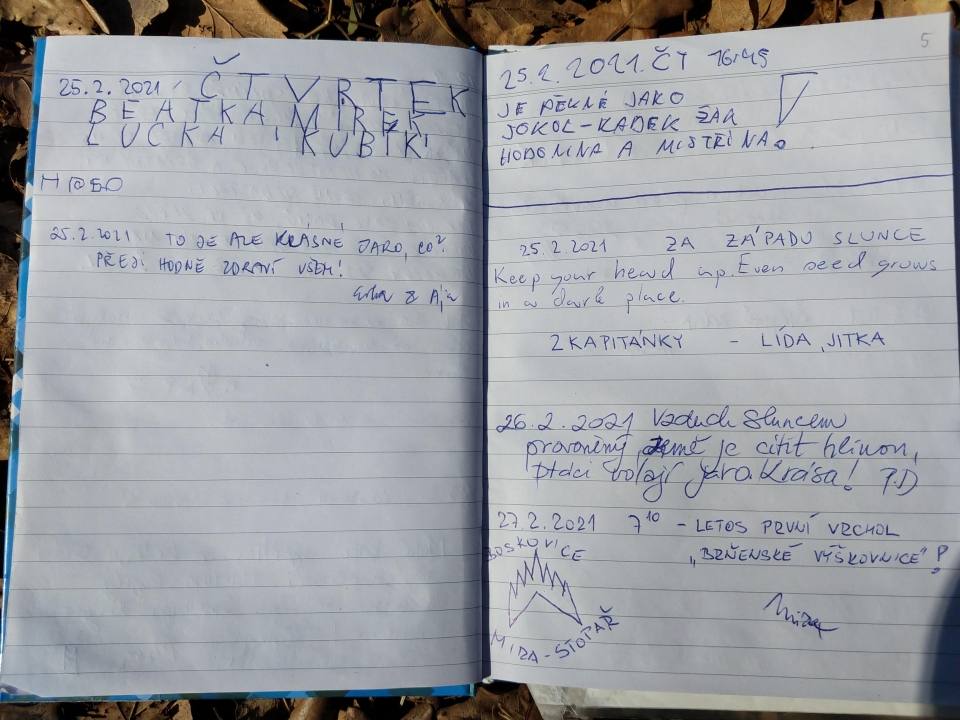 25.2.2021, ČTVRTEK
BEATKA, MIREK
LUCKA, KUBÍK!
25.2.2021 TO JE ALE KRÁSNÉ JARO, CO?
PŘEJI HODNĚ ZDRAVÍ VŠEM!
& Ája
5
25.2.2021. ČT 16:45
JE PĚKNĚ JAKO
SOKOL-RADEK ŽÁK
HODONÍNA A MISTŘÍNA.
25.2.2021 ZA ZÁPADU SLUNCE
Keep your head up. Even seed grows
in a dark place.
2 KAPITÁNKY - LÍDA, JITKA
26.2.2021 Vzduch sluncem
provoněný, země je cítit hlínou,
ptáci volají jaro. Krása! P.D
27.2.2021 7¹⁰ - LETOS PRVNÍ VRCHOL
„BRŇENSKÉ VÝŠKOVNICE“!
BOSKOVICE
MIRA-STOPAŘ